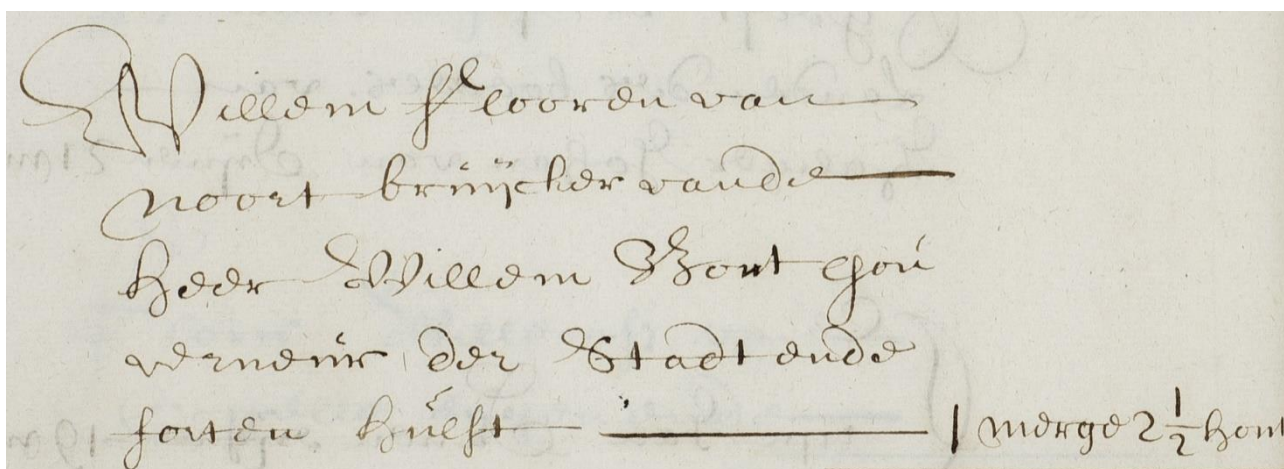 Willem Flooren van
noort brúijcker vande
Heer Willem Bont goú
verneúr der Stadt ende
forten húlst | merge 2 1/2 hont